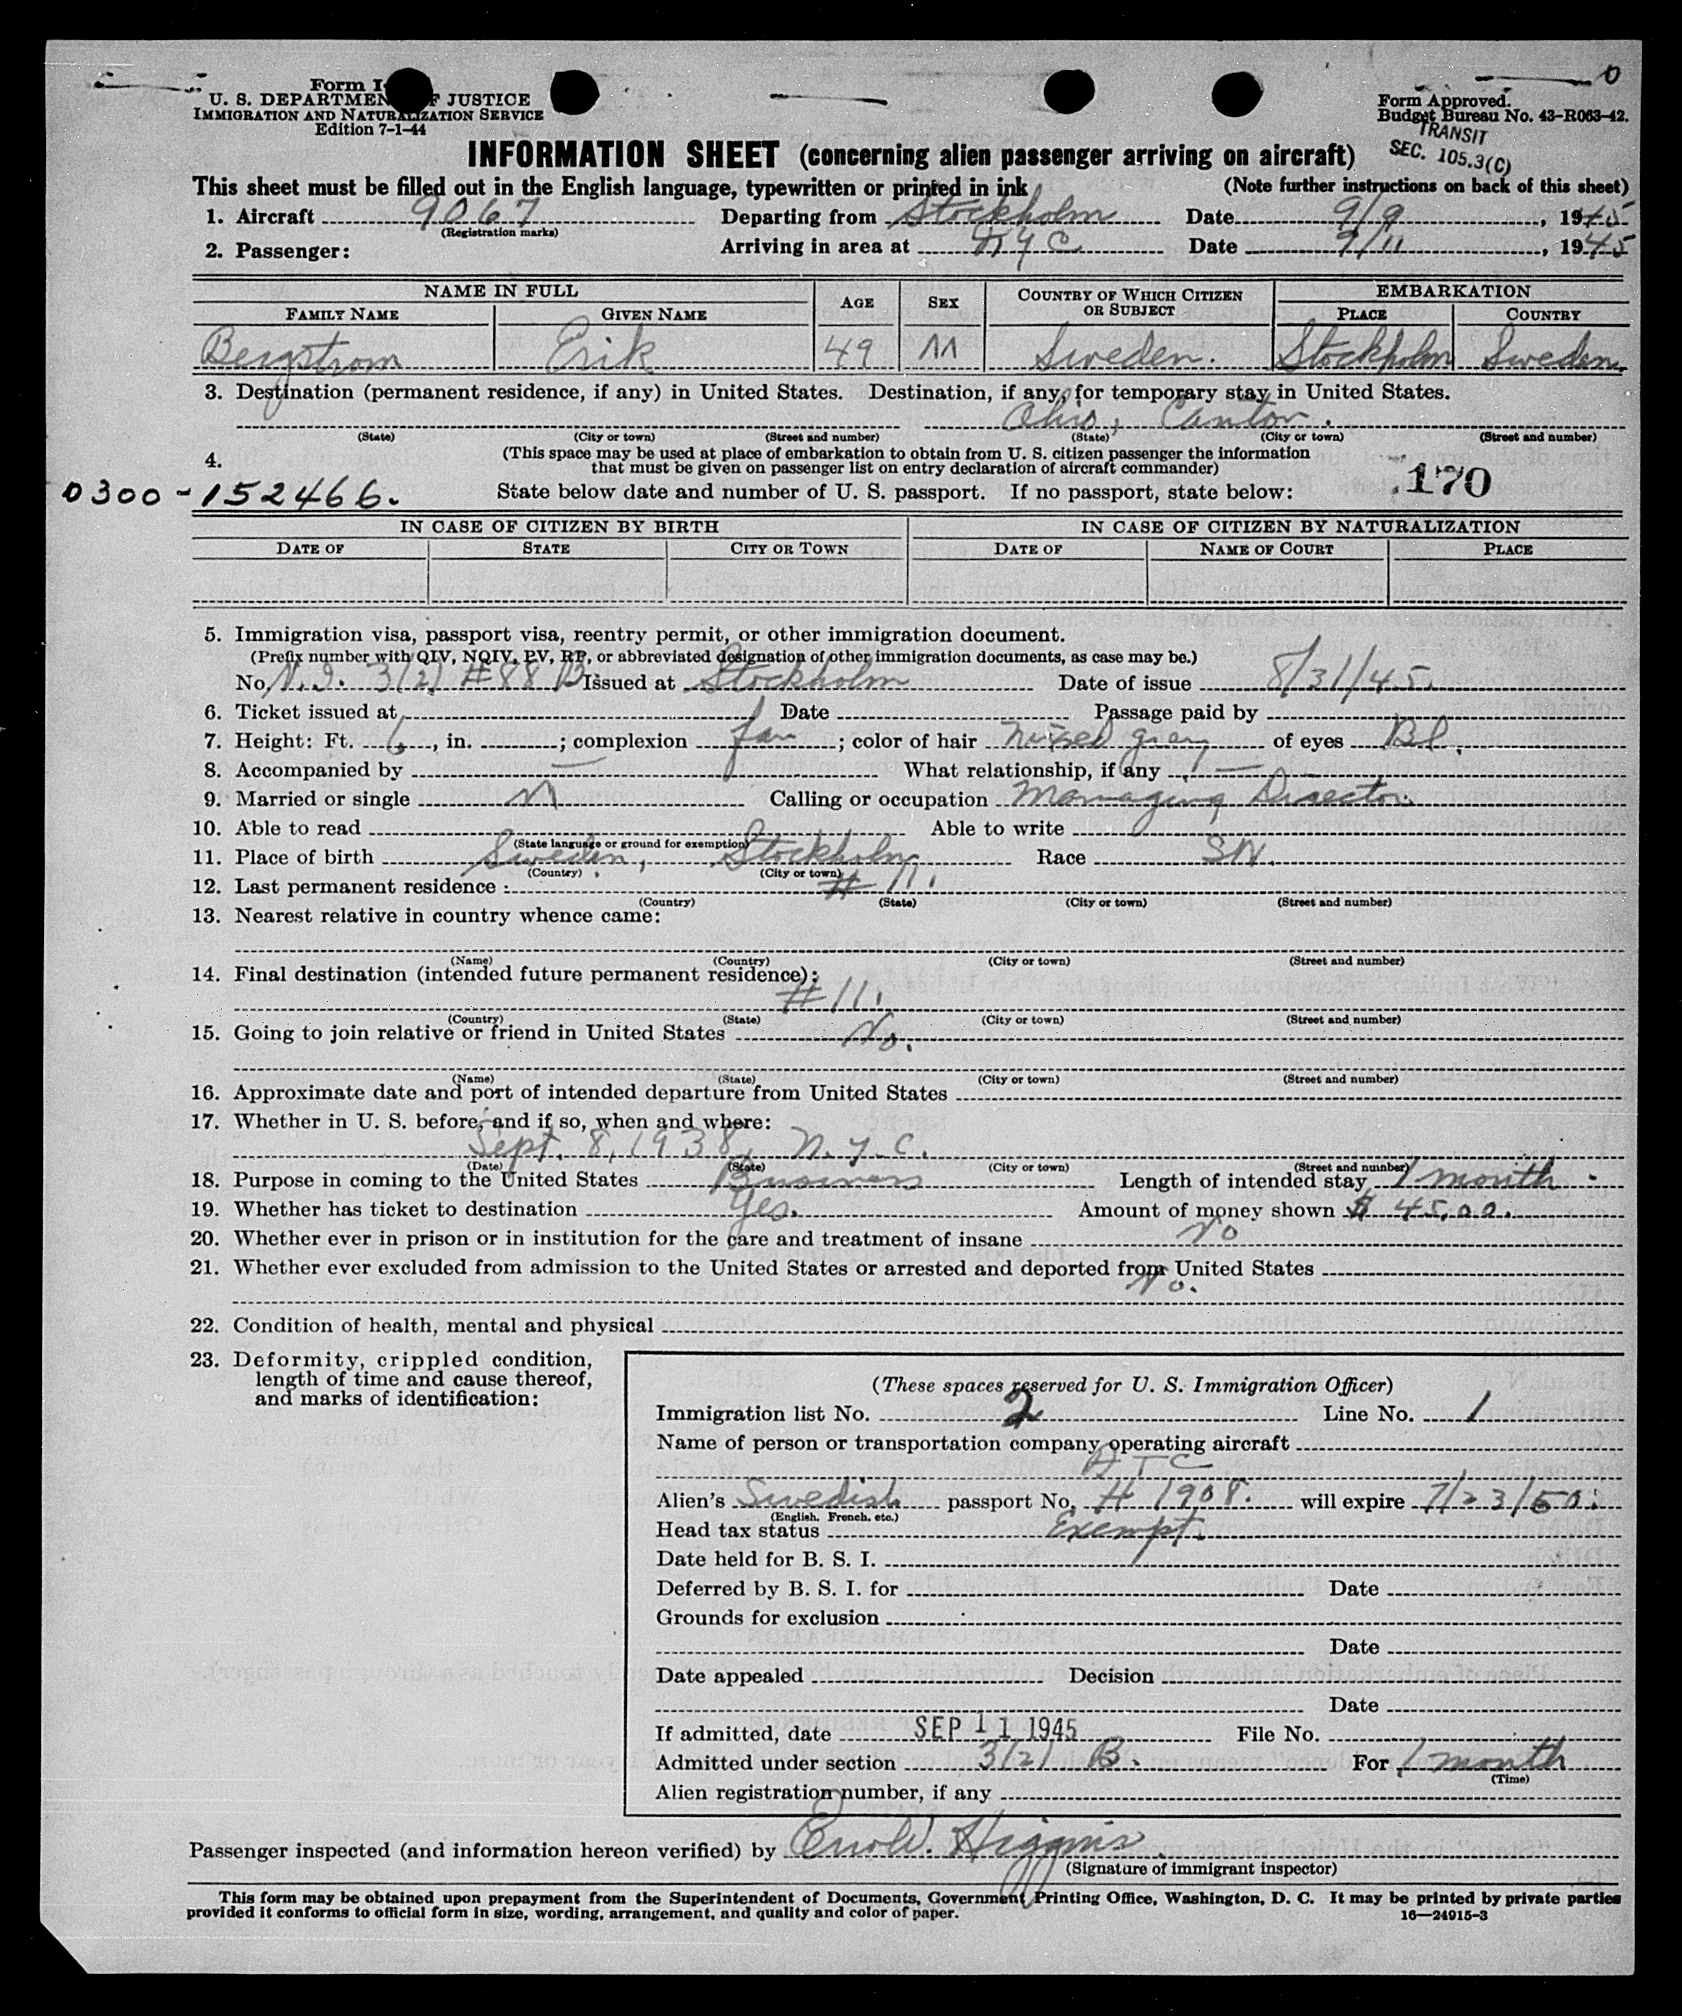 Form I-
U. S. DEPARTMENT OF JUSTICE
IMMIGRATION AND NATURALIZATION SERVICE
Edition 7-1-44
Form Approved.
Budget Bureau No. 43-R063-42.
TRANSIT
SEC. 105.3(C)
INFORMATION SHEET (concerning alien passenger arriving on aircraft)
This sheet must be filled out in the English language, typewritten or printed in ink
(Note further instructions on back of this sheet)
1. Aircraft 9067 Departing from Stockholm Date 9/9, 1945
(Registration marks)
2. Passenger: Arriving in area at NYC Date 9/11, 1945
NAME IN FULL AGE SEX COUNTRY OF WHICH CITIZEN OR SUBJECT EMBARKATION
FAMILY NAME GIVEN NAME PLACE COUNTRY
Bergstrom Erik 49 M Sweden. Stockholm Sweden.
3. Destination (permanent residence, if any) in United States. Destination, if any, for temporary stay in United States.
Ohio, Canton.
(State) (City or town) (Street and number) (State) (City or town) (Street and number)
4. (This space may be used at place of embarkation to obtain from U. S. citizen passenger the information
that must be given on passenger list on entry declaration of aircraft commander)
170
0300-152466. State below date and number of U. S. passport. If no passport, state below:
IN CASE OF CITIZEN BY BIRTH IN CASE OF CITIZEN BY NATURALIZATION
DATE OF STATE CITY OR TOWN DATE OF NAME OF COURT PLACE
5. Immigration visa, passport visa, reentry permit, or other immigration document.
(Prefix number with QIV, NQIV, PV, RP, or abbreviated designation of other immigration documents, as case may be.)
No. N.I. 3(2) #88 B Issued at Stockholm Date of issue 8/31/45.
6. Ticket issued at Date Passage paid by
7. Height: Ft. 6, in. ; complexion fair; color of hair mixed gray of eyes Bl.
8. Accompanied by — What relationship, if any —
9. Married or single M Calling or occupation Managing Director.
10. Able to read Able to write
(State language or ground for exemption)
11. Place of birth Sweden, Stockholm Race SW.
(Country) (City or town)
12. Last permanent residence : # 11.
(Country) (State) (City or town) (Street and number)
13. Nearest relative in country whence came:
(Name) (Country) (City or town) (Street and number)
14. Final destination (intended future permanent residence):
#11.
(Country) (State) (City or town) (Street and number)
15. Going to join relative or friend in United States No.
(Name) (State) (City or town) (Street and number)
16. Approximate date and port of intended departure from United States
17. Whether in U. S. before, and if so, when and where:
Sept. 8, 1938, N.Y.C.
(Date) (State) (City or town) (Street and number)
18. Purpose in coming to the United States Business Length of intended stay 1 month
19. Whether has ticket to destination Yes. Amount of money shown $ 45.00.
20. Whether ever in prison or in institution for the care and treatment of insane No
21. Whether ever excluded from admission to the United States or arrested and deported from United States
No.
22. Condition of health, mental and physical
23. Deformity, crippled condition,
length of time and cause thereof,
and marks of identification:
(These spaces reserved for U. S. Immigration Officer)
Immigration list No. 2 Line No. 1
Name of person or transportation company operating aircraft
ATC
Alien's Swedish passport No. H 1908. will expire 7/23/50.
(English, French, etc.)
Head tax status Exempt.
Date held for B. S. I.
Deferred by B. S. I. for Date
Grounds for exclusion
Date
Date appealed Decision
Date
If admitted, date SEP 11 1945 File No.
Admitted under section 3(2) B. For 1 month
(Time)
Alien registration number, if any
Passenger inspected (and information hereon verified) by Higgins
(Signature of immigrant inspector)
This form may be obtained upon prepayment from the Superintendent of Documents, Government Printing Office, Washington, D. C. It may be printed by private parties
provided it conforms to official form in size, wording, arrangement, and quality and color of paper.
16—24915-3